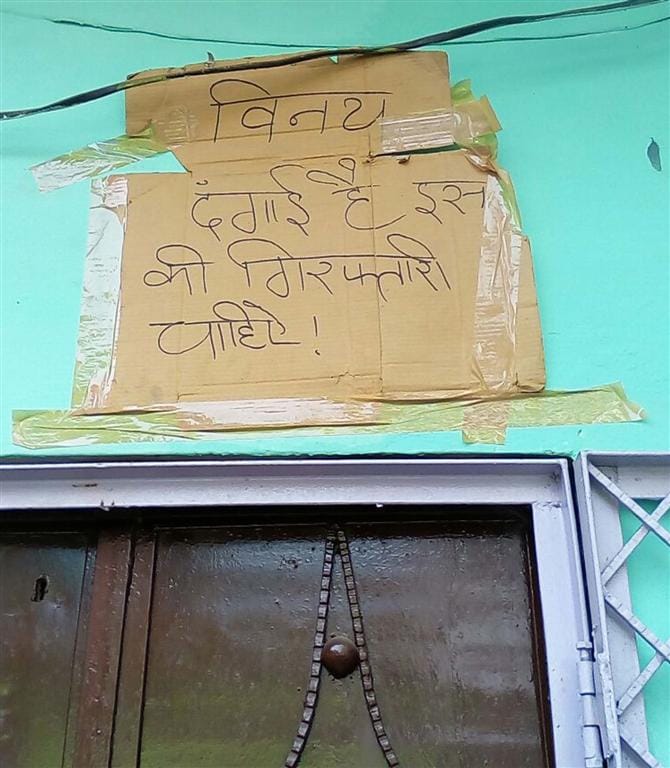 विनय
दंगाई है, इस
की गिरफ्तारी
चाहिऐ!